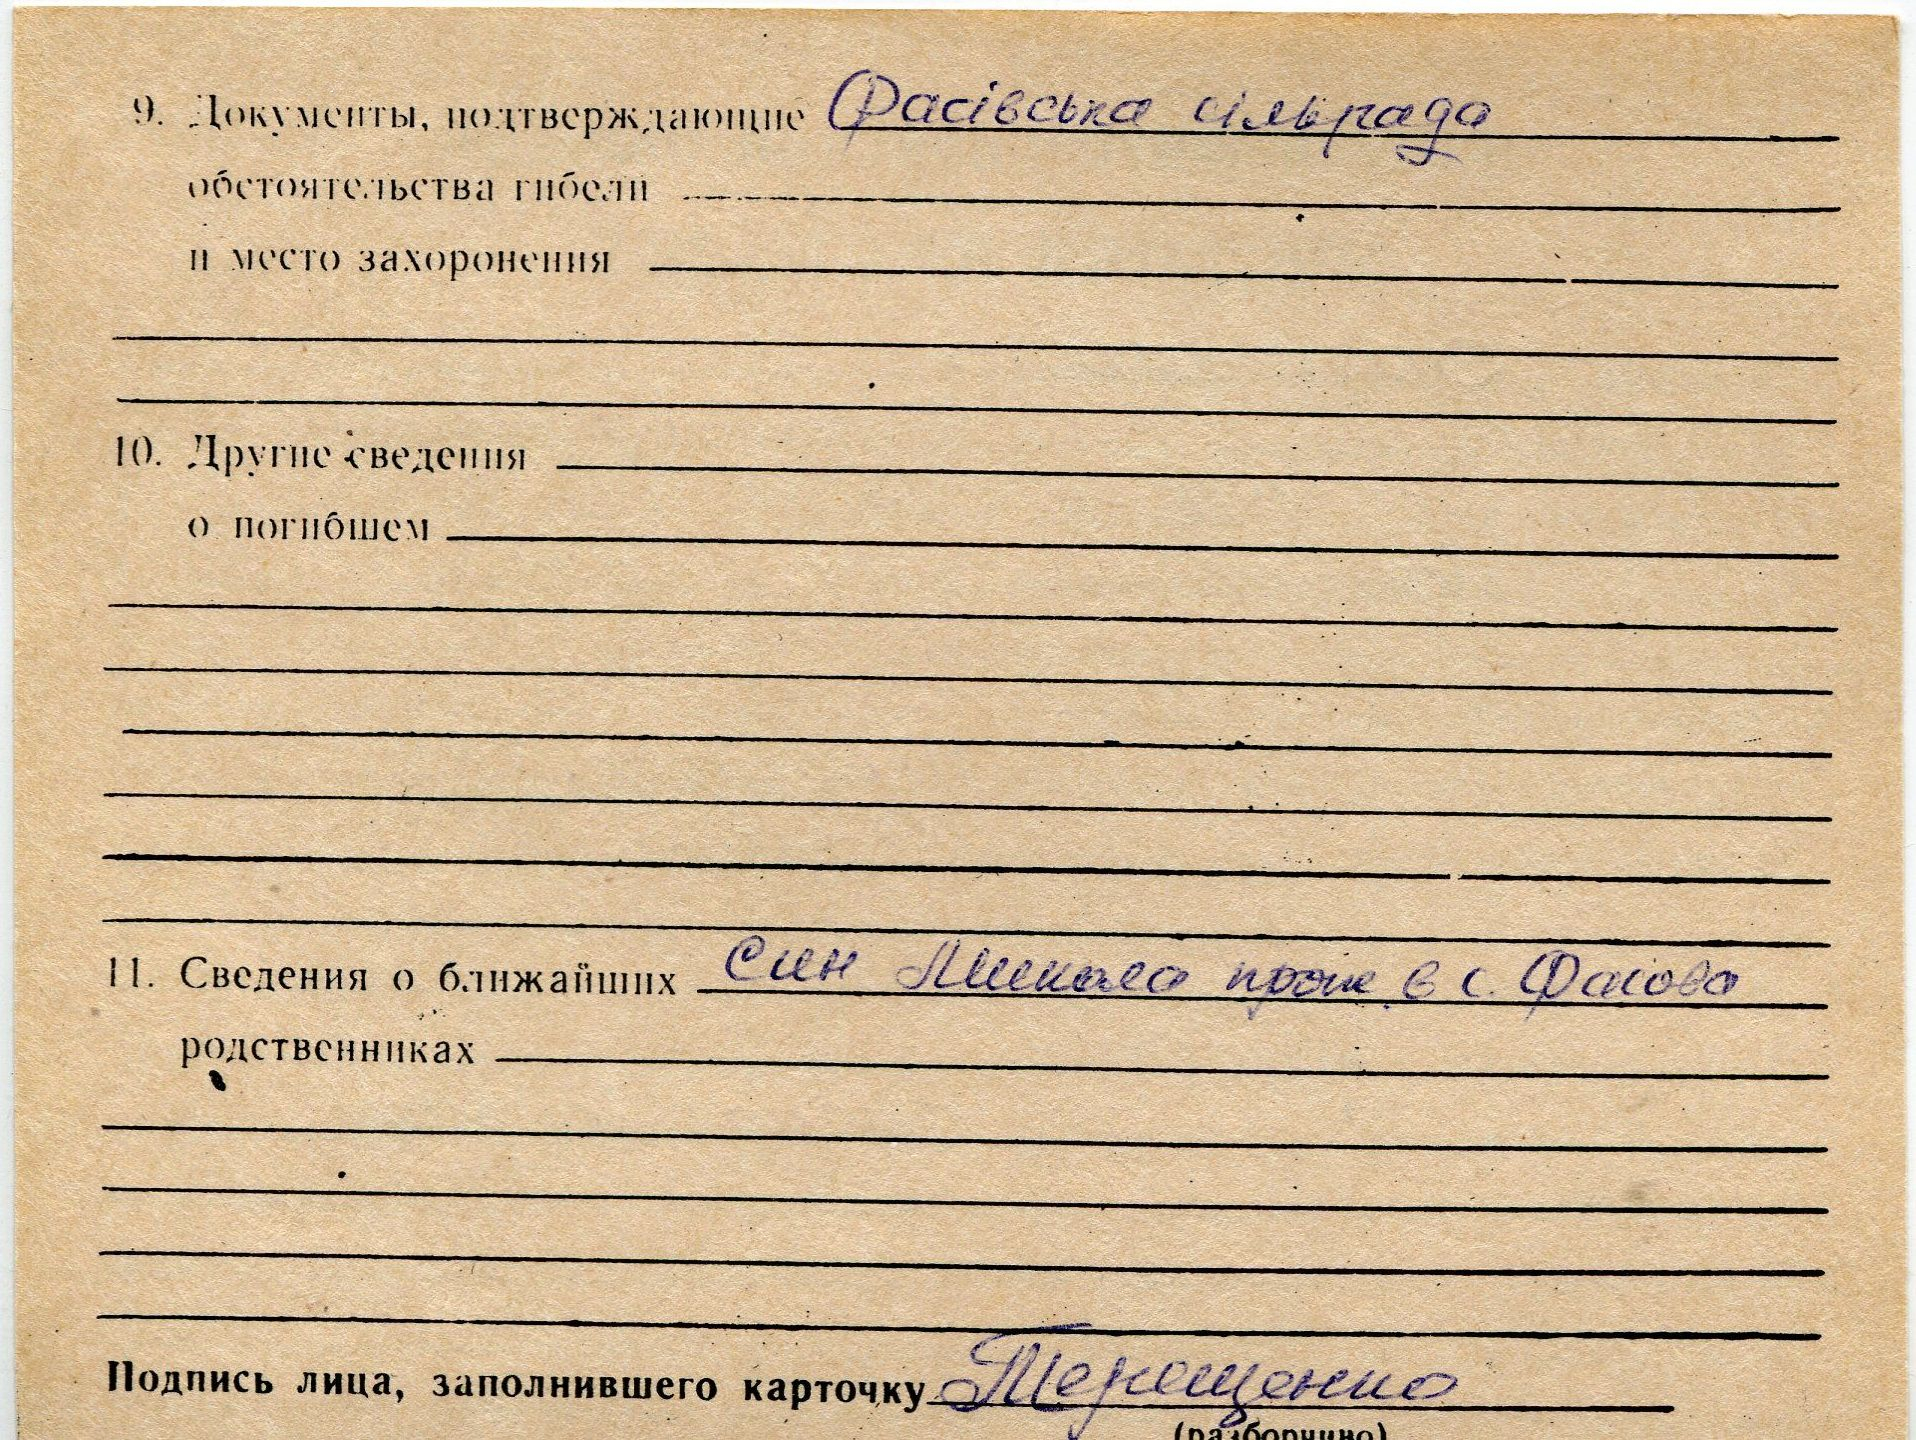 9. Документы, подтверждающие Фасівська сільрада
обстоятельства гибели
и место захоронения
10. Другие сведения
о погибшем
11. Сведения о ближайших син Микола прож. в с. Фасова
родственниках
Подпись лица, заполнившего карточку Терещенко
(разборчиво)